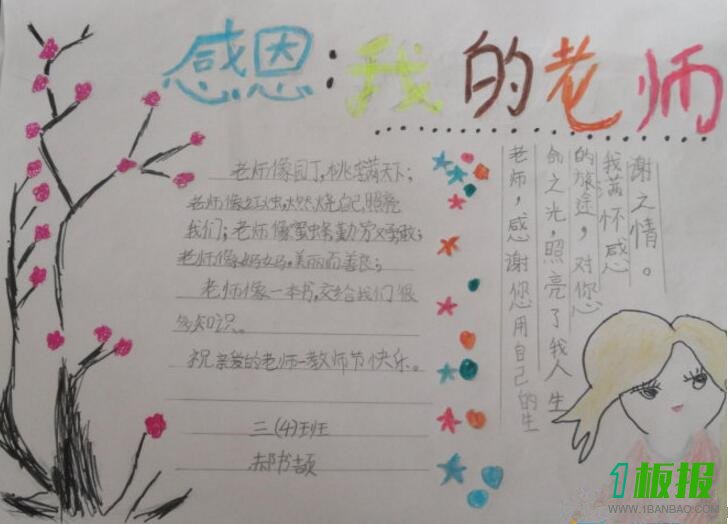 感恩:我的老师
老师像园丁,桃李满天下;
老师像红虫火燃烧自己,照亮
我们;老师像蜜蜂,勤劳又勇敢;
老师像妈妈,美丽而善良;
老师像一本书,交给我们很
多知识。
祝亲爱的老师—教师节快乐。
三(4)班
郝书颉
老师,感谢您用自己的生
命之光,照亮了我人生
的旅途,对您
我满怀感
谢之情。
1板报
WWW.1BANBAO.COM